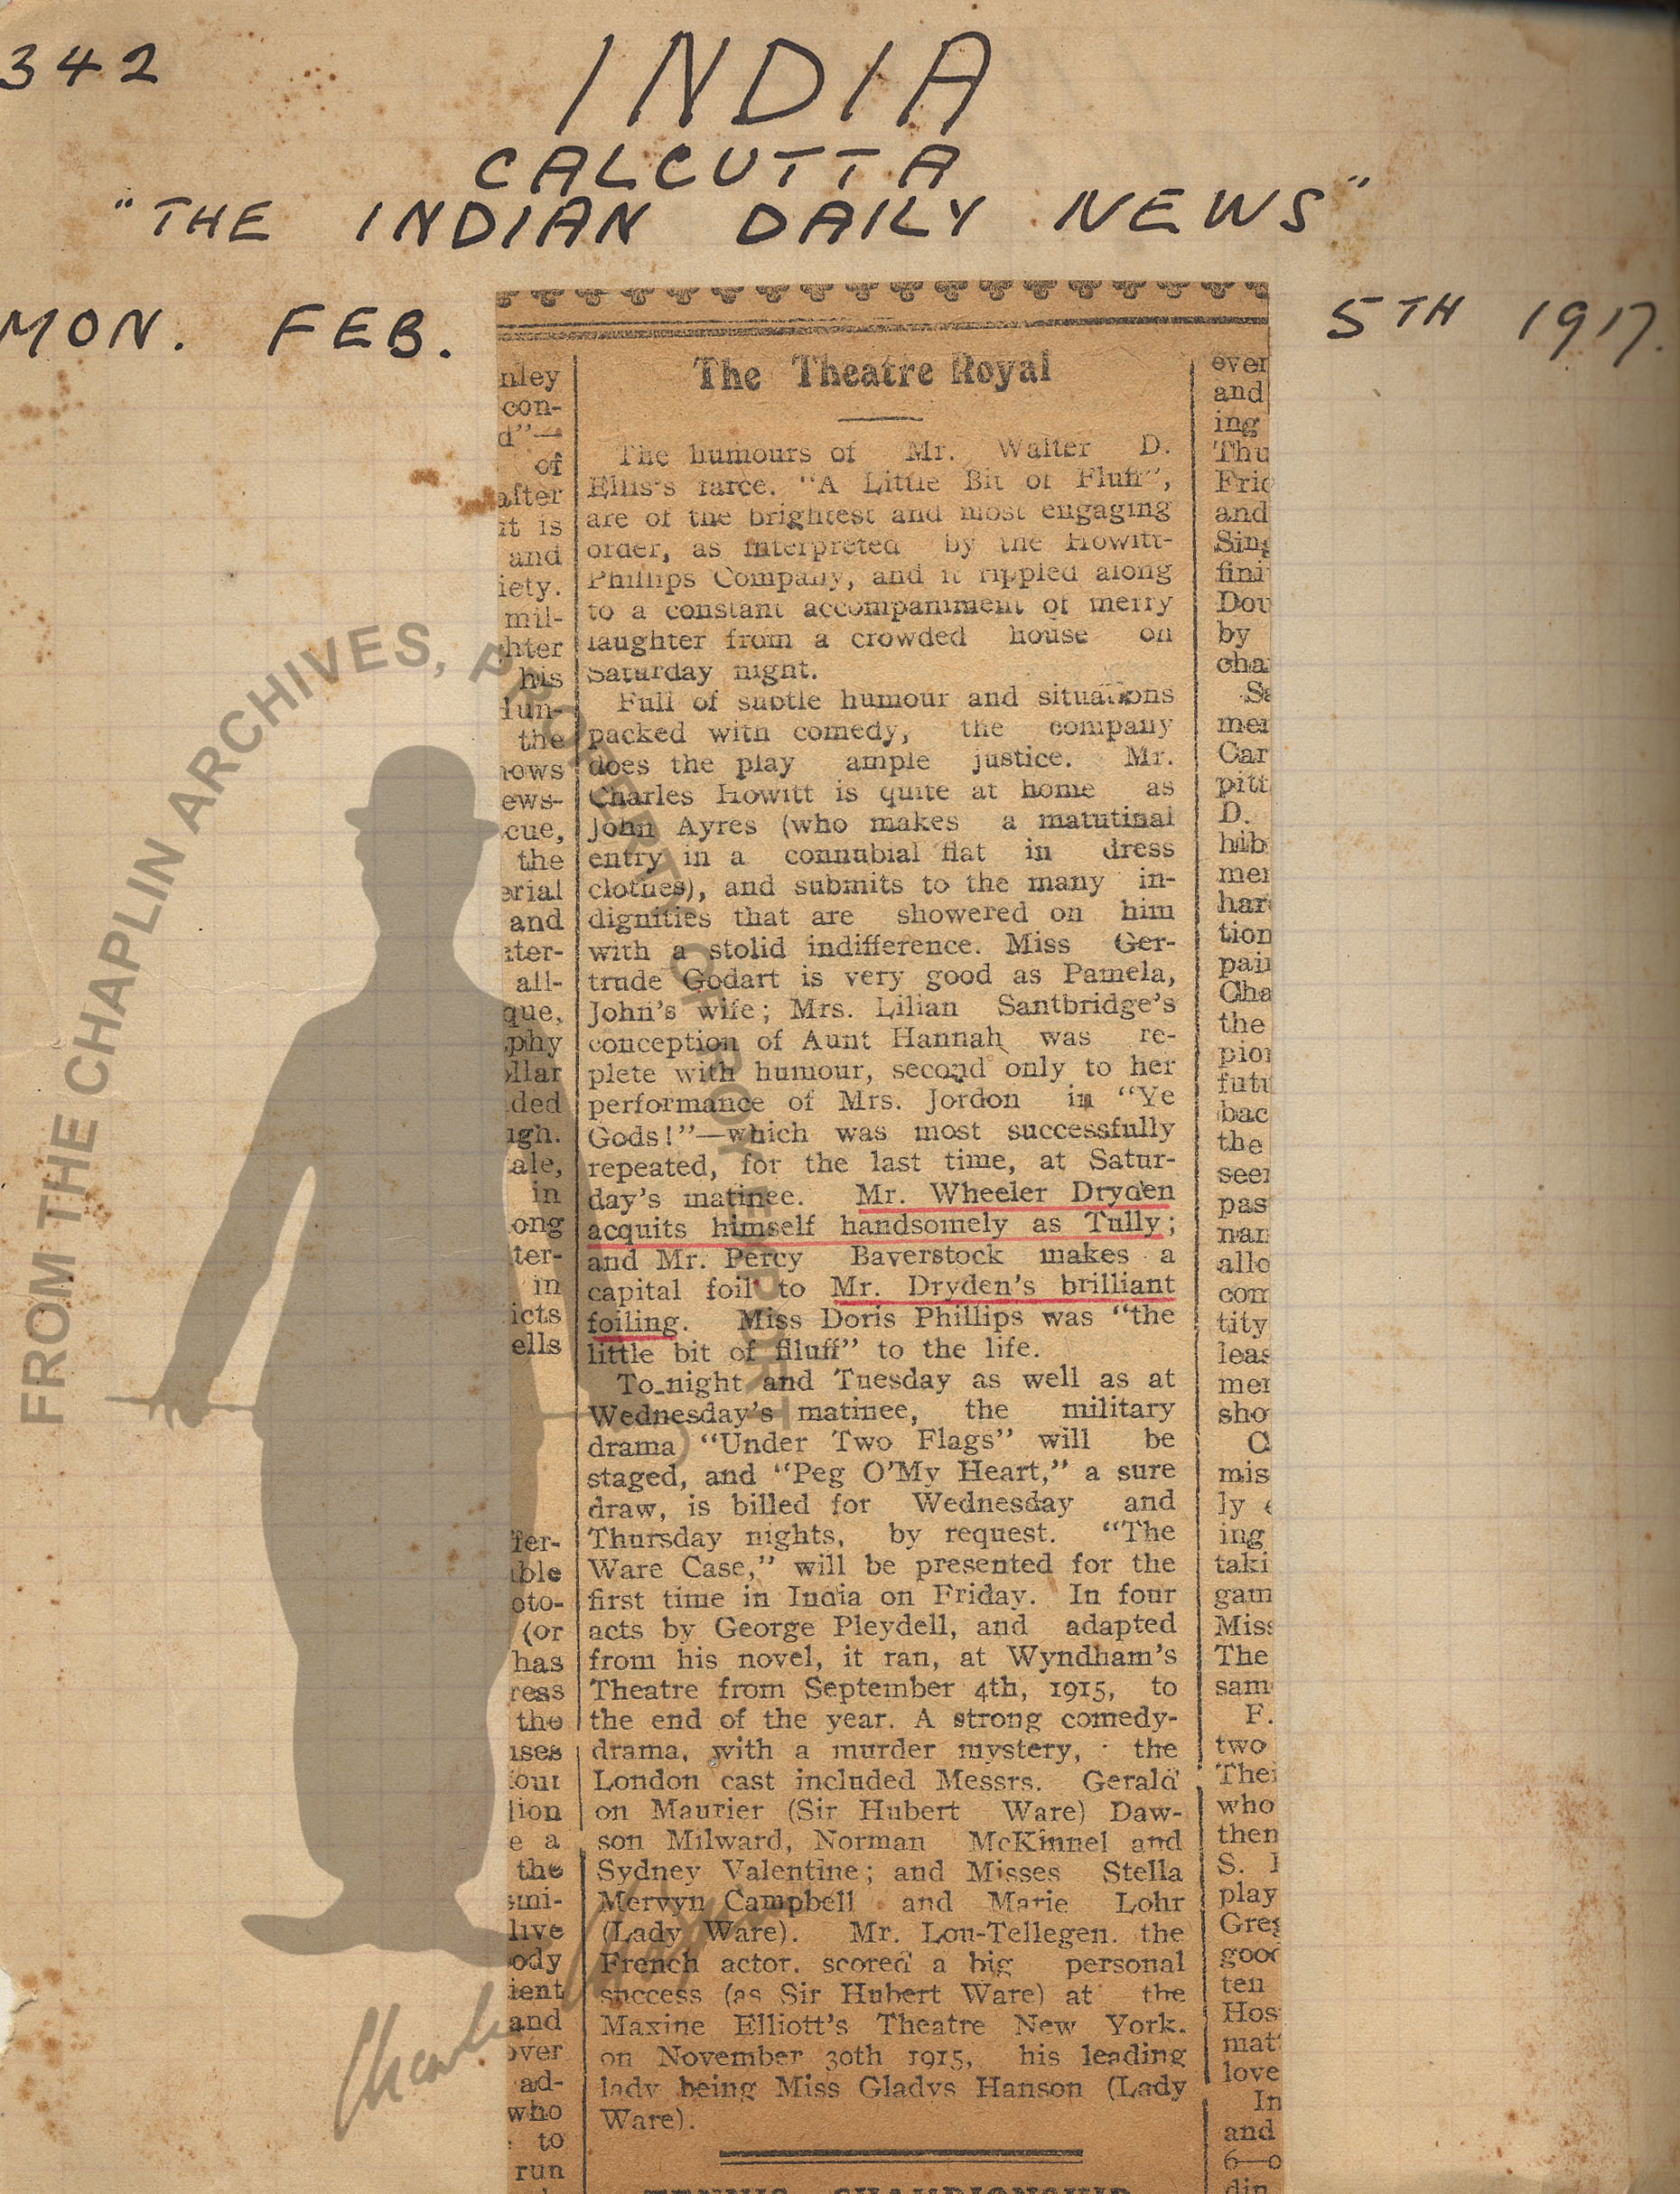 342
INDIA
CALCUTTA
"THE INDIAN DAILY NEWS"
MON. FEB. 5TH 1917.
The Theatre Royal
The humours of Mr. Walter D.
Ellis's farce. "A Little Bit of Fluff",
are of the brightest and most engaging
order, as interpreted by the Howitt-
Phillips Company, and it rippled along
to a constant accompaniment of merry
laughter from a crowded house on
Saturday night.
Full of subtle humour and situations
packed with comedy, the company
does the play ample justice. Mr.
Charles Howitt is quite at home as
John Ayres (who makes a matutinal
entry in a connubial flat in dress
clothes), and submits to the many in-
dignities that are showered on him
with a stolid indifference. Miss Ger-
trude Godart is very good as Pamela,
John's wife; Mrs. Lilian Santbridge's
conception of Aunt Hannah was re-
plete with humour, second only to her
performance of Mrs. Jordon in "Ye
Gods!"—which was most successfully
repeated, for the last time, at Satur-
day's matinee. Mr. Wheeler Dryden
acquits himself handsomely as Tully;
and Mr. Percy Baverstock makes a
capital foil to Mr. Dryden's brilliant
foiling. Miss Doris Phillips was "the
little bit of fluff" to the life.
To-night and Tuesday as well as at
Wednesday's matinee, the military
drama "Under Two Flags" will be
staged, and "Peg O'My Heart," a sure
draw, is billed for Wednesday and
Thursday nights, by request. "The
Ware Case," will be presented for the
first time in India on Friday. In four
acts by George Pleydell, and adapted
from his novel, it ran, at Wyndham's
Theatre from September 4th, 1915, to
the end of the year. A strong comedy-
drama, with a murder mystery, the
London cast included Messrs. Gerald
on Maurier (Sir Hubert Ware) Daw-
son Milward, Norman McKinnel and
Sydney Valentine; and Misses Stella
Mervyn Campbell and Marie Lohr
(Lady Ware). Mr. Lou-Tellegen. the
French actor. scored a big personal
success (as Sir Hubert Ware) at the
Maxine Elliott's Theatre New York.
on November 30th 1915, his leading
lady being Miss Gladys Hanson (Lady
Ware).
TENNIS CHAMPIONSHIP
FROM THE CHAPLIN ARCHIVES, PROPERTY OF ROY EXPORT